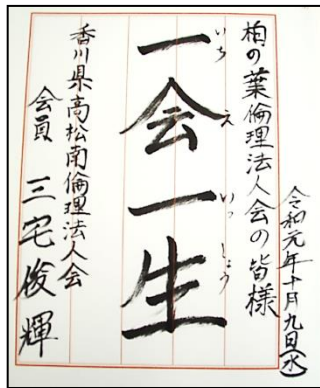 令和元年十月九日(水)
柏の葉倫理法人会の皆様
一会一生
いち え いっしょう
香川県高松南倫理法人会
会員 三宅俊輝